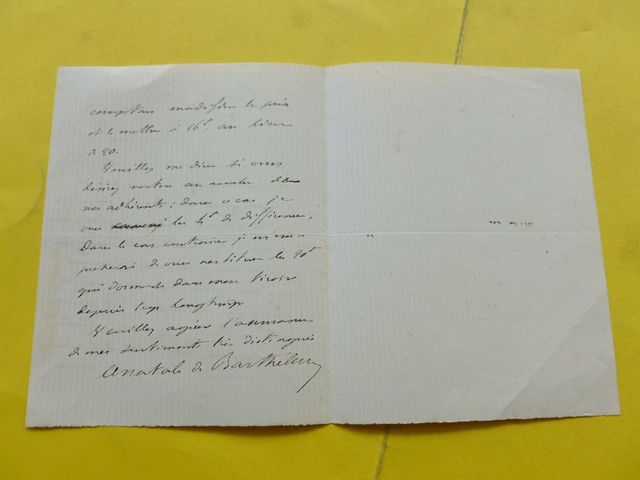 comptons modifier le prix
et le mettre à 16f au lieu
de 20.
Veuillez me dire si vous
désirez rester au nombre de
nos adhérents ; dans ce cas je
vous les 4f de différence,
Dans le cas contraire je m'em-
presserai de vous restituer les 20f
qui dorment dans mon tiroir
depuis trop longtemps
Veuillez agréer l'assurance
de mes sentiments très distingués
Anatole de Barthélemy